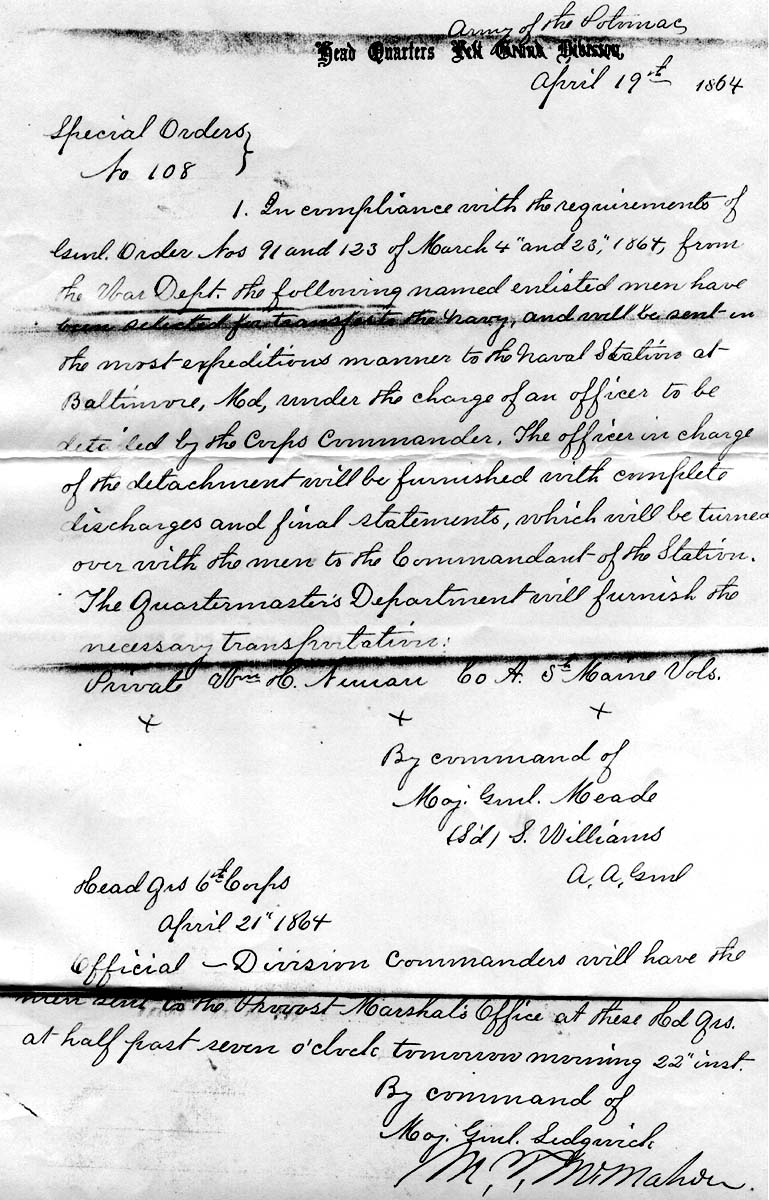 Army of the Potomac
Head Quarters Left Grand Division,
April 19th 1864
Special Orders
No 108
1. In compliance with the requirements of
Genl. Order Nos 91 and 123 of March 4" and 23", 1864, from
the War Dept. the following named enlisted men have
been selected for transfer to the Navy, and will be sent in
the most expeditious manner to the Naval Station at
Baltimore, Md, under the charge of an officer to be
detailed by the Corps Commander. The officer in charge
of the detachment will be furnished with complete
discharges and final statements, which will be turned
over with the men to the Commandant of the Station.
The Quartermaster's Department will furnish the
necessary transportation:
Private Wm H. Co A. 5th Maine Vols.
+ + +
By command of
Maj. Genl. Meade
(Sd) S. Williams
A. A. Genl
Head Qrs 6th Corps
April 21" 1864
Official – Division Commanders will have the
men sent to the Provost Marshal's Office at these Hd Qrs.
at half past seven o'clock tomorrow morning 22" inst.
By command of
Maj. Genl. Sedgwick
M. T. McMahon